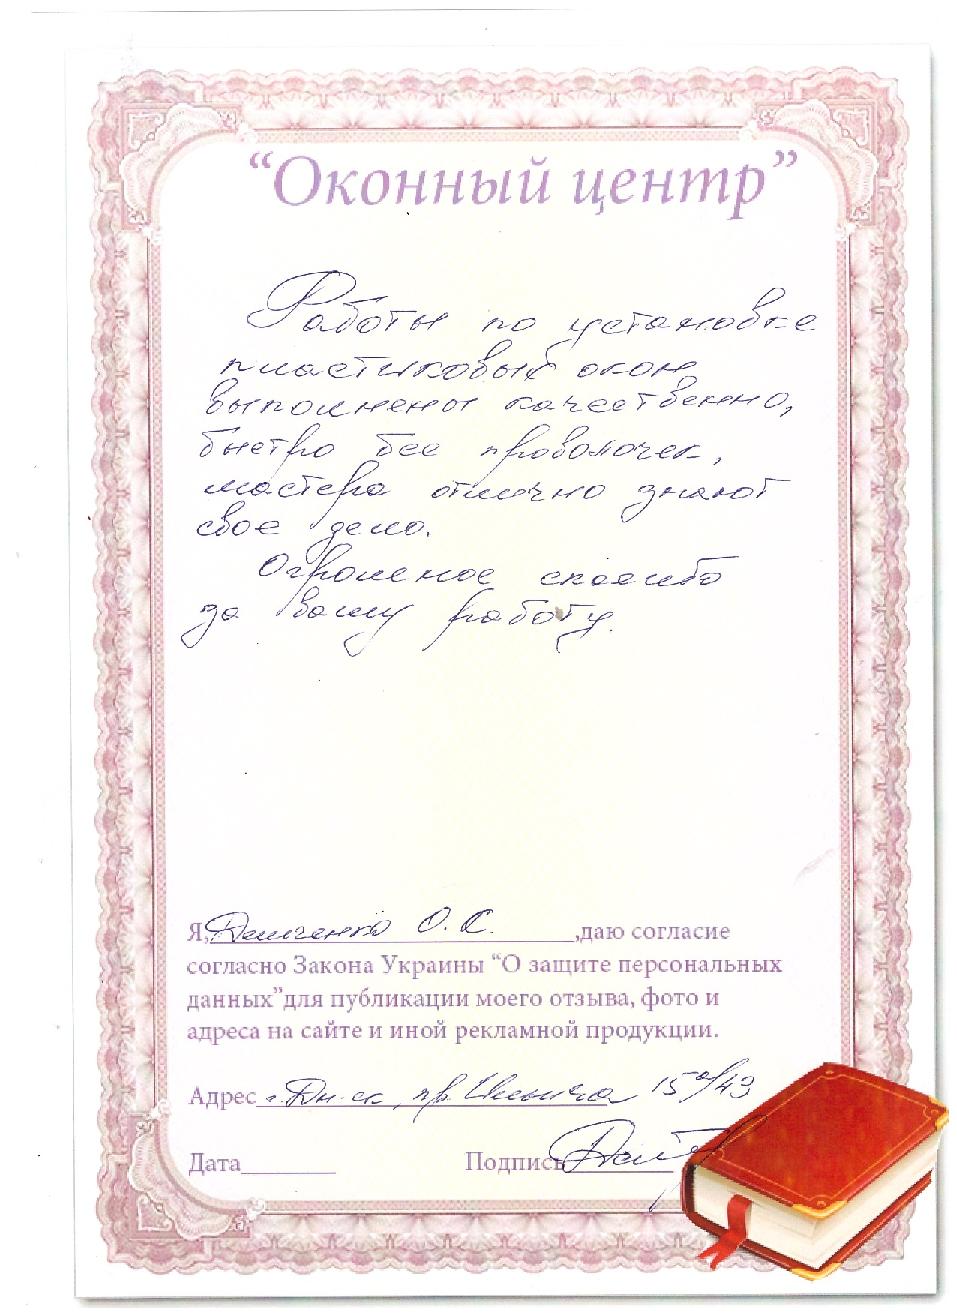 “Оконный центр”
Работы по установке
пластиковых окон
выполнены качественно,
быстро без проволочек,
мастера отлично знают
свое дело.
Огромное спасибо
за вашу работу.
Я, Демченко О. С. ,даю согласие
согласно Закона Украины “О защите персональных
данных”для публикации моего отзыва, фото и
адреса на сайте и иной рекламной продукции.
Адрес г. Дн-ск, пр. Ильича
Дата Подпись